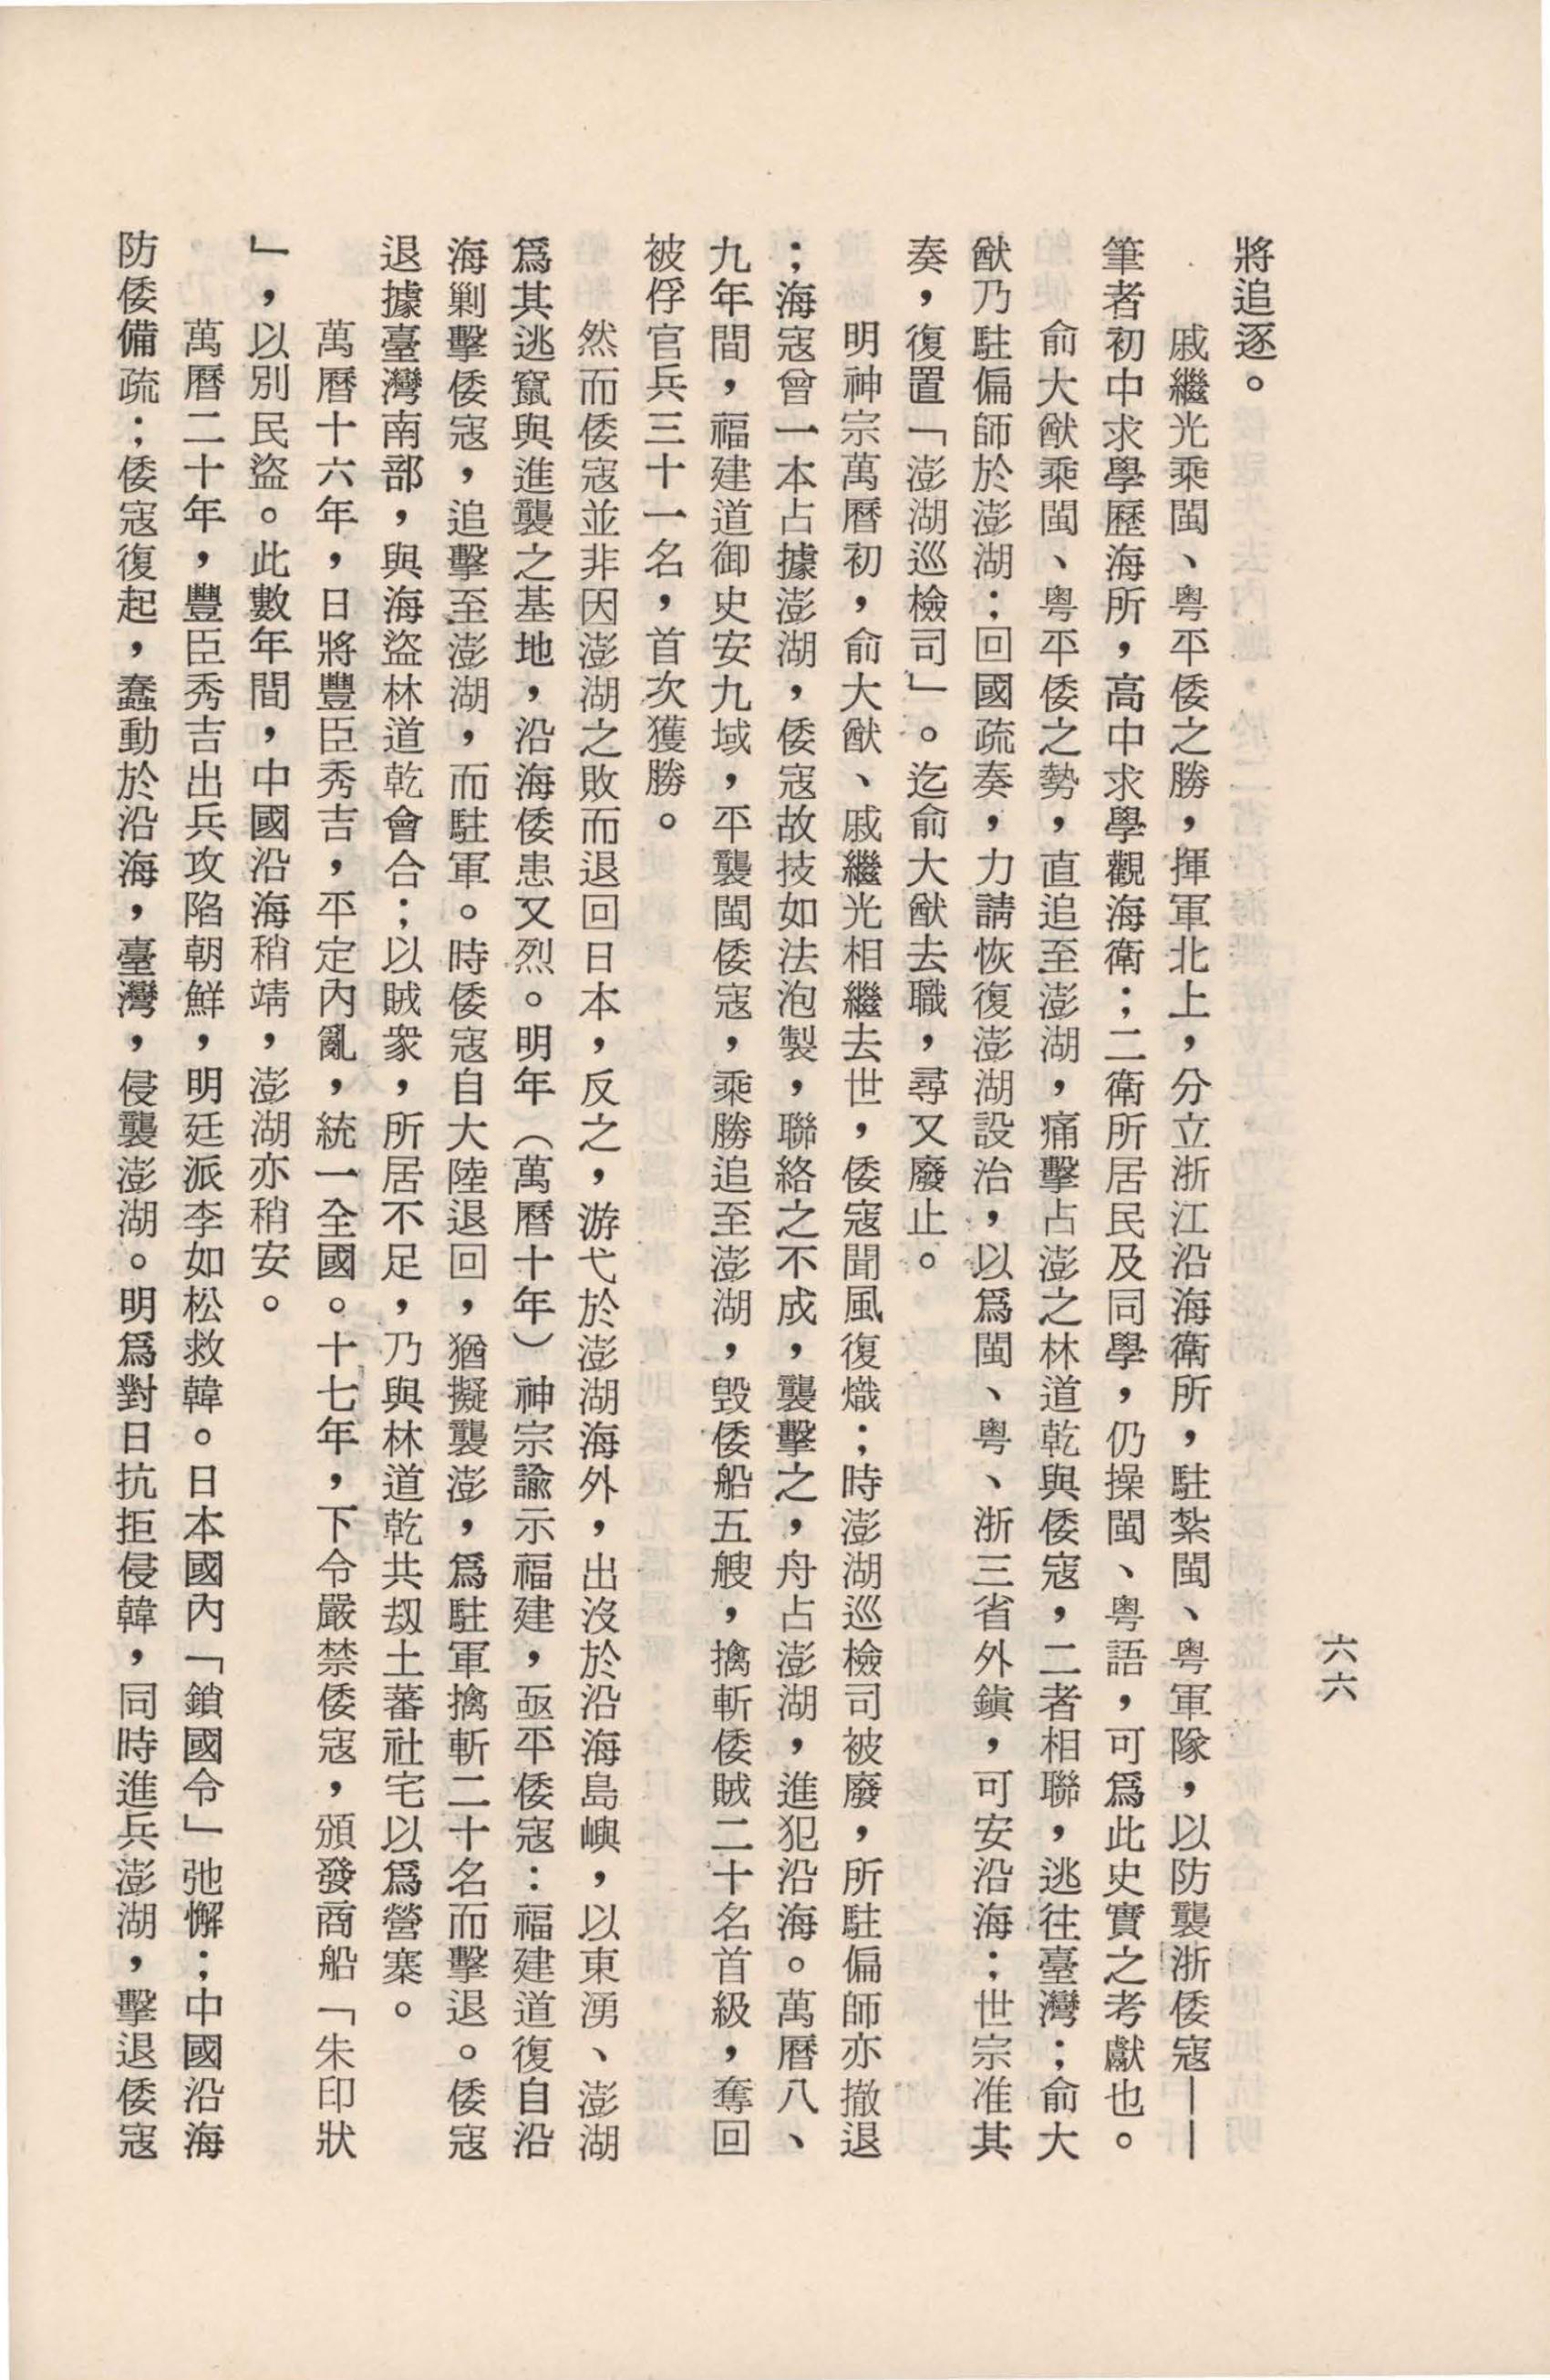 六六
將追逐。
戚繼光乘閩、粤平倭之勝，揮軍北上，分立浙江沿海衛所，駐紮閩、粤軍隊，以防襲浙倭寇——
筆者初中求學歷海所，高中求學觀海衛；二衛所居民及同學，仍操閩、粤語，可爲此史實之考獻也。
俞大猷乘閩、粤平倭之勢，直追至澎湖，痛擊占澎之林道乾與倭寇，二者相聯，逃往臺灣；俞大
猷乃駐偏師於澎湖；回國疏奏，力請恢復澎湖設治，以爲閩、粤、浙三省外鎭，可安沿海；世宗准其
奏，復置「澎湖巡檢司」。迄俞大猷去職，尋又廢止。
明神宗萬曆初，俞大猷、戚繼光相繼去世，倭寇聞風復熾；時澎湖巡檢司被廢，所駐偏師亦撤退
；海寇曾一本占據澎湖，倭寇故技如法泡製，聯絡之不成，襲擊之，舟占澎湖，進犯沿海。萬曆八、
九年間，福建道御史安九域，平襲閩倭寇，乘勝追至澎湖，毀倭船五艘，擒斬倭賊二十名首級，奪回
被俘官兵三十一名，首次獲勝。
然而倭寇並非因澎湖之敗而退回日本，反之，游弋於澎湖海外，出沒於沿海島嶼，以東湧、澎湖
爲其逃竄與進襲之基地，沿海倭患又烈。明年（萬曆十年）神宗諭示福建，亟平倭寇：福建道復自沿
海剿擊倭寇，追擊至澎湖，而駐軍。時倭寇自大陸退回，猶擬襲澎，爲駐軍擒斬二十名而擊退。倭寇
退據臺灣南部，與海盜林道乾會合；以賊衆，所居不足，乃與林道乾共刼土蕃社宅以爲營寨。
萬曆十六年，日將豐臣秀吉，平定內亂，統一全國。十七年，下令嚴禁倭寇，頒發商船「朱印狀
」，以別民盜。此數年間，中國沿海稍靖，澎湖亦稍安。
萬曆二十年，豐臣秀吉出兵攻陷朝鮮，明廷派李如松救韓。日本國內「鎖國令」弛懈；中國沿海
防倭備疏；倭寇復起，蠢動於沿海，臺灣，侵襲澎湖。明爲對日抗拒侵韓，同時進兵澎湖，擊退倭寇